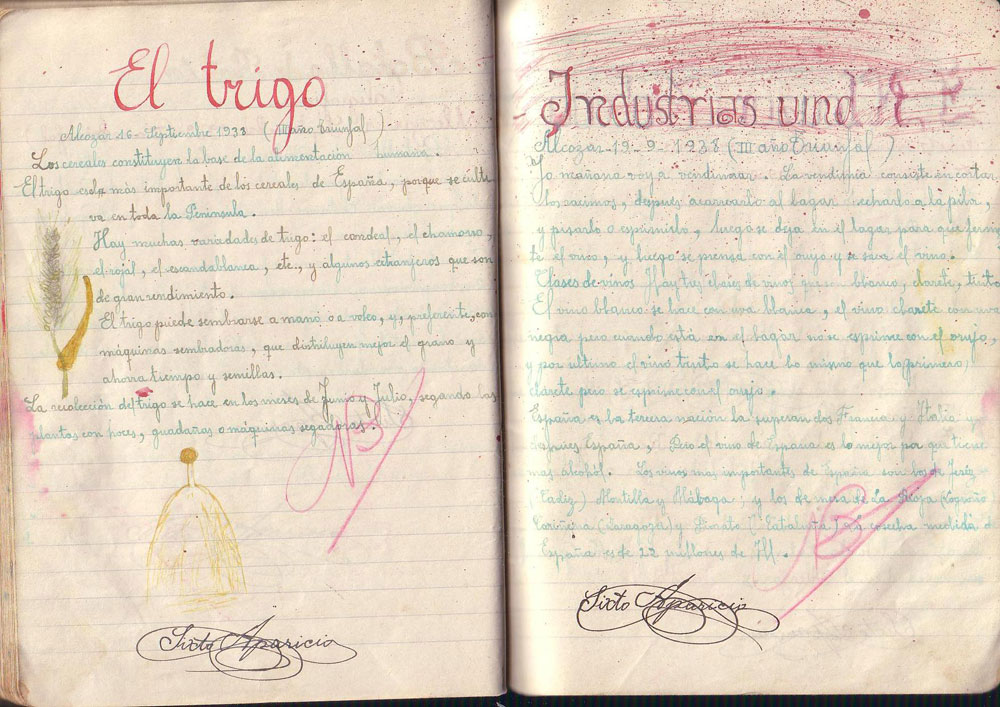 El trigo
Alcozar 16- Septiembre 1938 (III año Triunfal)
Los cereales constituyen la base de la alimentación humana.
El trigo es el más importante de los cereales de España, porque se culti
va en toda la Península.
Hay muchas variedades de trigo: el candeal, el chamorro,
el rojal, el escandablanca, etc., y algunos extranjeros que son
de gran rendimiento.
El trigo puede sembrarse a mano o a voleo, y, preferente, con
máquinas sembradoras, que distribuyen mejor el grano y
ahorra tiempo y semillas.
La recolección del trigo se hace en los meses de Junio y Julio, segando las
plantas con hoces, guadañas o máquinas segadoras.
Sixto Aparicio
Industrias vino
Alcozar-19-9-1938 (III año Triunfal)
Yo mañana voy a vendimiar. La vendimia consiste en cortar
los racimos, después acarrearlo al lagar y echarlo a la pila,
y pisarlo o esprimirlo, luego se deja en el lagar para que fermi
te el vino, y luego se prensa con el orujo y se saca el vino.
Clases de vinos Hay tres clases de vinos que son blanco, clarete, tinto
El vino blanco se hace con uva blanca, el vino clarete con uva
negra pero cuando está en el lagar no se esprime con el orujo,
y por ultimo el vino tinto se hace lo mismo que lo primero,
clarete pero se esprime con el orujo.
España es la tercera nación la superan dos Francia y Italia
después España, Pero el vino de España es lo mejor por que tiene
mas alcohol. Los vinos mas importantes de España son los de Jeréz
(Cadiz) Montilla y Málaga: y los de mesa de La Rioja (Logroño
Cariñena (Zaragoza) y Priorato (Cataluña) La cosecha medida de
España es de 22 millones de Hl.
Sixto Aparicio